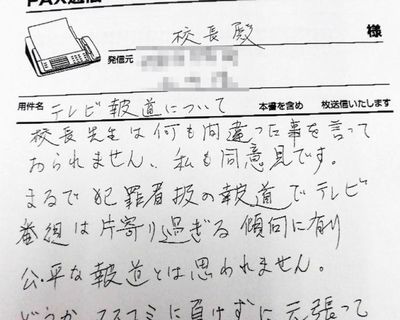 FAX通信
校長殿 様
発信元
用件名 テレビ報道について 本書を含め 枚送信いたします
校長先生は何も間違った事を言って
おられません、私も同意見です。
まるで犯罪者扱の報道でテレビ
番組は片寄り過ぎる傾向に有り
公平な報道とは思われません。
どうかマスコミに負けずに元張って